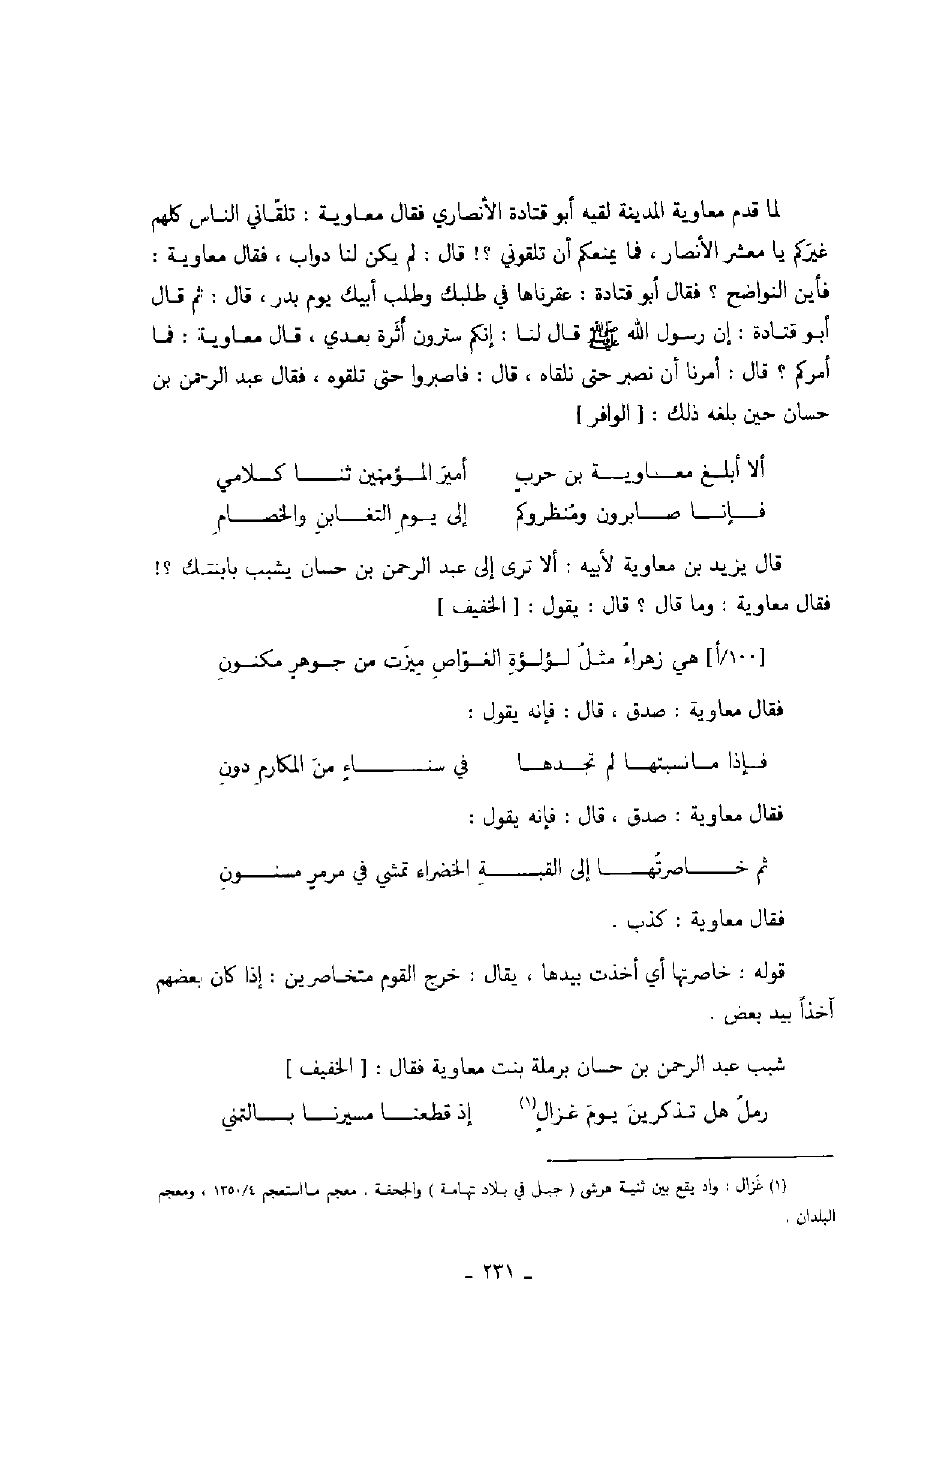 لما قدم معاوية المدينة لقيه أبو قتادة الأنصاري فقال معاوية : تلقّاني الناس كلهم
غيرَكم يا معشر الأنصار ، فما يمنعكم أن تلقوني ؟! قال : لم يكن لنا دواب ، فقال معاوية :
فأين النواضح ؟ فقال أبو قتادة : عقرناها في طلبك وطلب أبيك يوم بدر ، قال : ثم قال
أبو قتادة : إن رسول الله ﷺ قال لنا : إنكم سترون أَثَرة بعدي ، قال معاوية : فما
أمركم ؟ قال : أمرنا أن نصبر حتى نلقاه ، قال : فاصبروا حتى تلقوه ، فقال عبد الرحمن بن
حسان حين بلغه ذلك : [ الوافر ]
ألا أبلغ معاوية بن حربٍ أميرَ المؤمنين نثا كلامي
فإنا صابرون ومُنظروكم إلى يومِ التغابنِ والخصامِ
قال يزيد بن معاوية لأبيه : ألا ترى إلى عبد الرحمن بن حسان يشبب بابنتك ؟!
فقال معاوية : وما قال ؟ قال : يقول : [ الخفيف ]
[١٠٠/أ] هي زهراءُ مثلُ لؤلؤةِ الغوّاصِ مِيزَت من جوهرٍ مكنونِ
فقال معاوية : صدق ، قال : فإنه يقول :
فإذا مانسبتها لم تجدها في سناءٍ منَ المكارمِ دونِ
فقال معاوية : صدق ، قال : فإنه يقول :
ثم خاصرتُها إلى القبةِ الخضراء تمشي في مرمرٍ مسنونِ
فقال معاوية : كذب .
قوله : خاصرتها أي أخذت بيدها ، يقال : خرج القوم متخاصرين : إذا كان بعضهم
آخذاً بيد بعض .
شبب عبد الرحمن بن حسان برملة بنت معاوية فقال : [ الخفيف ]
رملُ هل تذكرينَ يومَ غزالٍ(١) إذ قطعنا مسيرنا بالتمني
(١) غَزال : واد يقع بين ثنية هرشى ( جبل في بلاد تهامة ) والجحفة . معجم مااستعجم ١٣٥٠/٤ ، ومعجم
البلدان .
ـ ٢٣١ ـ